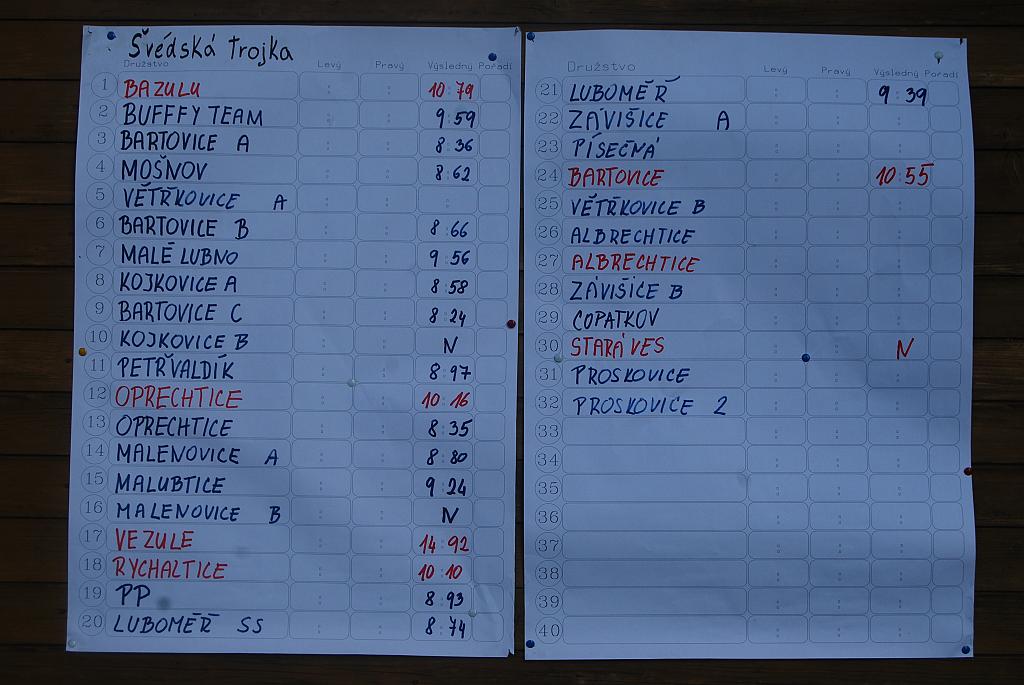 Švédská trojka
Družstvo Levý Pravý Výsledný Pořadí
1 BAZULU 10:79
2 BUFFFY TEAM 9:59
3 BARTOVICE A 8:36
4 MOŠNOV 8:62
5 VĚTŘKOVICE A
6 BARTOVICE B 8:66
7 MALÉ LUBNO 9:56
8 KOJKOVICE A 8:58
9 BARTOVICE C 8:24
10 KOJKOVICE B N
11 PETŘVALDÍK 8:97
12 OPRECHTICE 10:16
13 OPRECHTICE 8:35
14 MALENOVICE A 8:80
15 MALUBTICE 9:24
16 MALENOVICE B N
17 VEZULE 14:92
18 RYCHALTICE 10:10
19 PP 8:93
20 LUBOMĚŘ SS 8:74
Družstvo Levý Pravý Výsledný Pořadí
21 LUBOMĚŘ 9:39
22 ZÁVIŠICE A
23 PÍSEČNÁ
24 BARTOVICE 10:55
25 VĚTŘKOVICE B
26 ALBRECHTICE
27 ALBRECHTICE
28 ZÁVIŠICE B
29 COPATKOV
30 STARÁ VES N
31 PROSKOVICE
32 PROSKOVICE 2
33
34
35
36
37
38
39
40